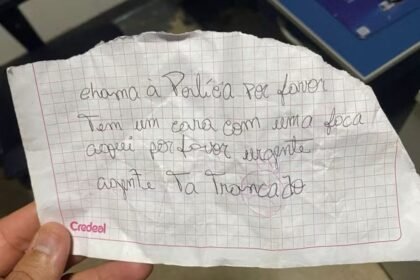 chama à Polícia Por favor
Tem um cara com uma faca
aqui por favor urgente
agente Ta Trancado
Credeal